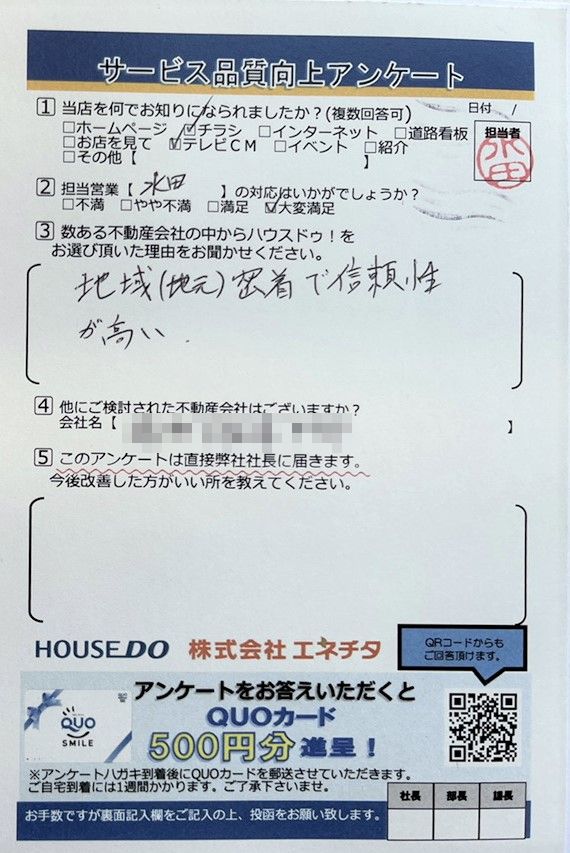 サービス品質向上アンケート
1 当店を何でお知りになられましたか?(複数回答可)
日付 /
□ホームページ ☑チラシ □インターネット □道路看板
□お店を見て ☑テレビCM □イベント □紹介
□その他【 】
担当者
水田
2 担当営業【 水田 】の対応はいかがでしょうか?
□不満 □やや不満 □満足 ☑大変満足
3 数ある不動産会社の中からハウスドゥ!を
お選び頂いた理由をお聞かせください。
地域(地元)密着で信頼性
が高い.
4 他にご検討された不動産会社はございますか?
会社名【 】
5 このアンケートは直接弊社社長に届きます。
今後改善した方がいい所を教えてください。
HOUSEDO 株式会社 エネチタ
QRコードからも
ご回答頂けます。
アンケートをお答えいただくと
QUOカード
500円分 進呈!
QUO
SMILE
※アンケートハガキ到着後にQUOカードを郵送させていただきます。
ご自宅到着には1週間かかります。ご了承下さいませ。
社長 部長 課長
お手数ですが裏面記入欄をご記入の上、投函をお願い致します。